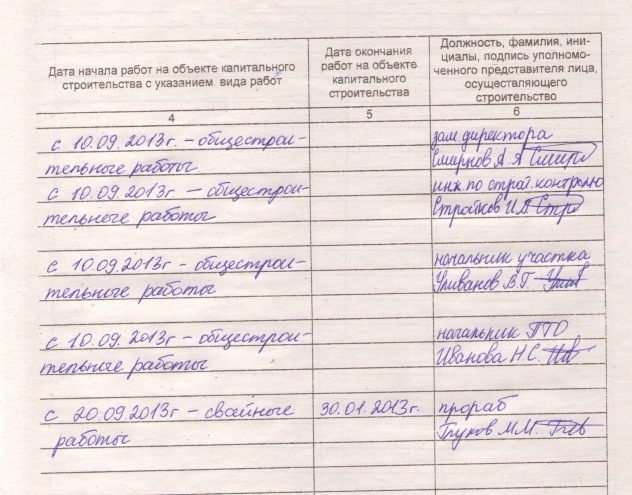 Дата начала работ на объекте капитального
строительства с указанием вида работ
Дата окончания
работ на объекте
капитального
строительства
Должность, фамилия, ини-
циалы, подпись уполномо-
ченного представителя лица,
осуществляющего
строительство
4
5
6
с 10.09.2013г. – общестрои-
тельные работы
зам. директора
Смирнов А.А
с 10.09.2013г. – общестрои-
тельные работы
инж по строй.контролю
Стройков И.А.
с 10.09.2013г – общестрои-
тельные работы
начальник участка
В.Г.
с 10.09.2013г – общестрои-
тельные работы
начальник ПТО
Иванова Н.С.
с 20.09.2013г – свайные
работы
30.01.2013г.
прораб
М.М.